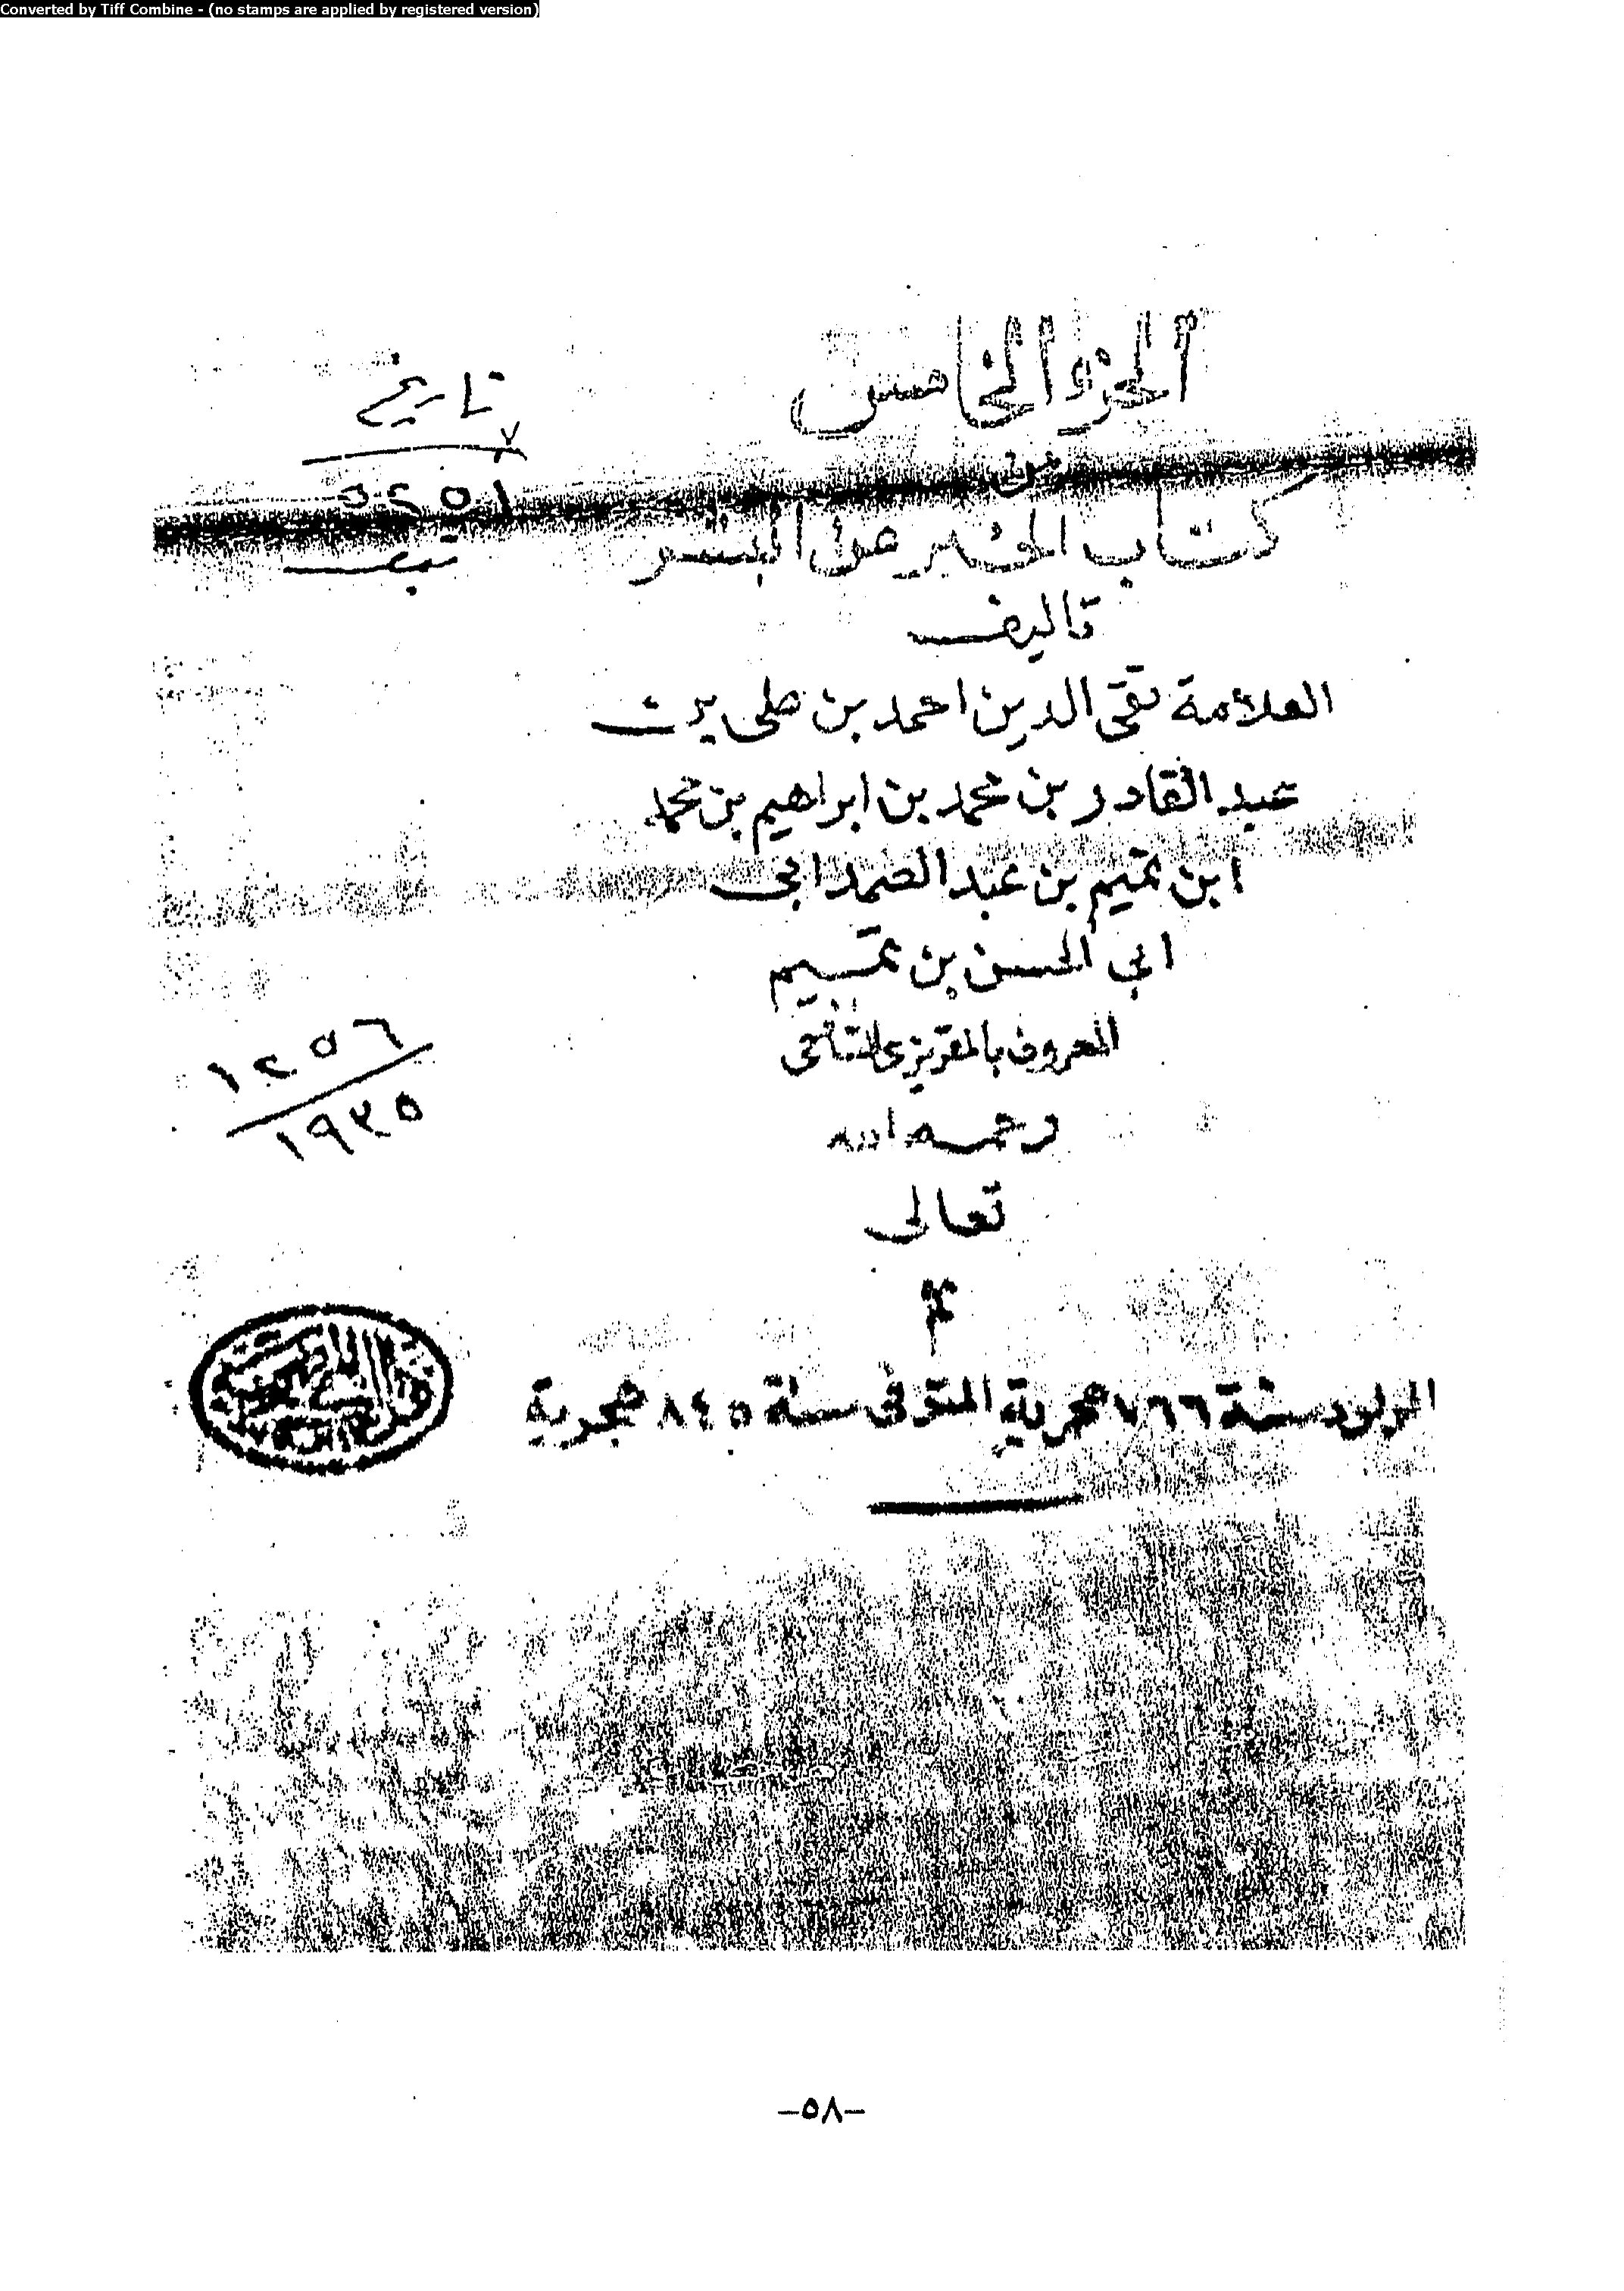 Converted by Tiff Combine - (no stamps are applied by registered version)
الجزء الخامس
من
كتاب الخبر عن البشر
تاليف
العلامة تقى الدين احمد بن على بن
عبد القادر بن محمد بن ابراهيم بن محمد
ابن تميم بن عبد الصمد ابى
ابي الحسن بن تميم
المعروف بالمقريزى الشافعى
رحمه الله
تعالى
م
المولود سنة ٧٦٦ هجرية المتوفى سنة ٨٤٥ هجرية
تاريخ
٧
١٢٥٦
١٩٣٥
-٥٨-